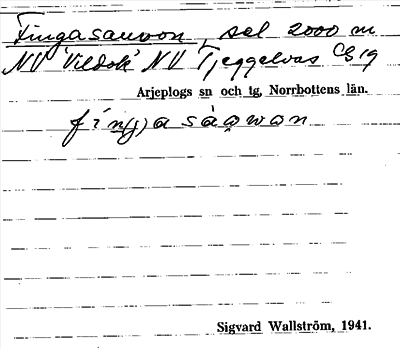 Fingasauvon, sel 2000 m
NV Vildok NV Tjeggelvas C8 19
Arjeplogs sn och tg, Norrbottens län.
fiŋ(ŋ)a sàọwon
Sigvard Wallström, 1941.